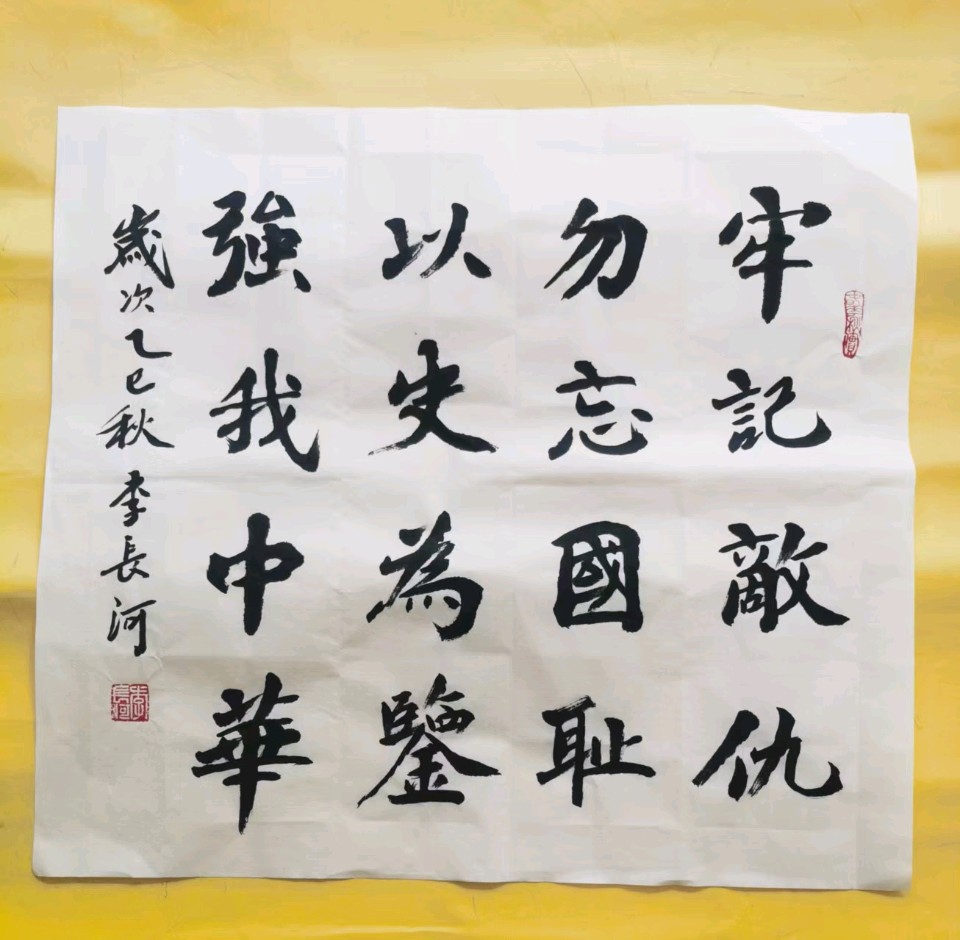 牢記敵仇
勿忘國耻
以史為鑒
強我中華
歲次乙巳秋李長河
李長河